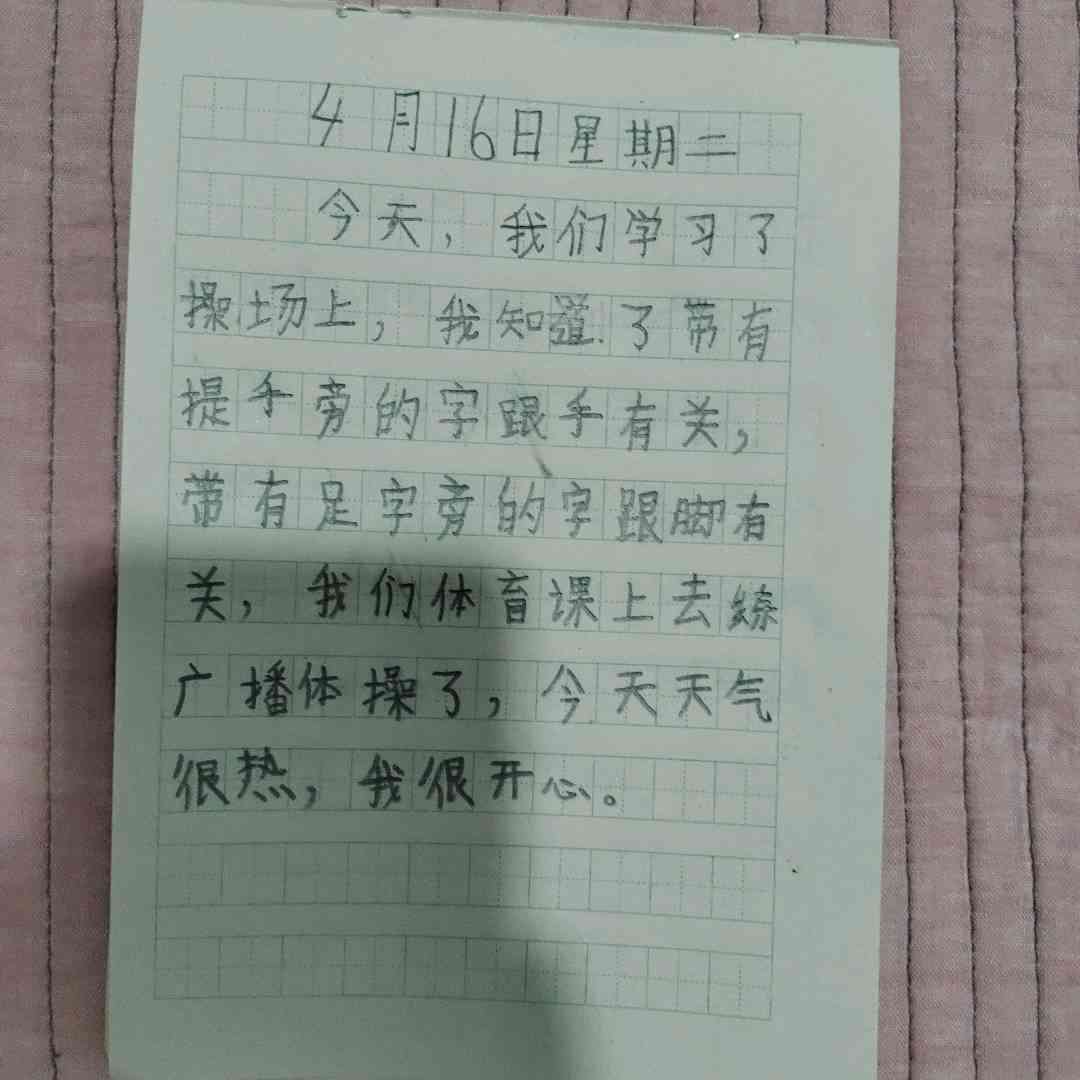 4月16日星期二
今天，我们学习了
操场上，我知道了带有
提手旁的字跟手有关，
带有足字旁的字跟脚有
关，我们体育课上去练
广播体操了，今天天气
很热，我很开心。